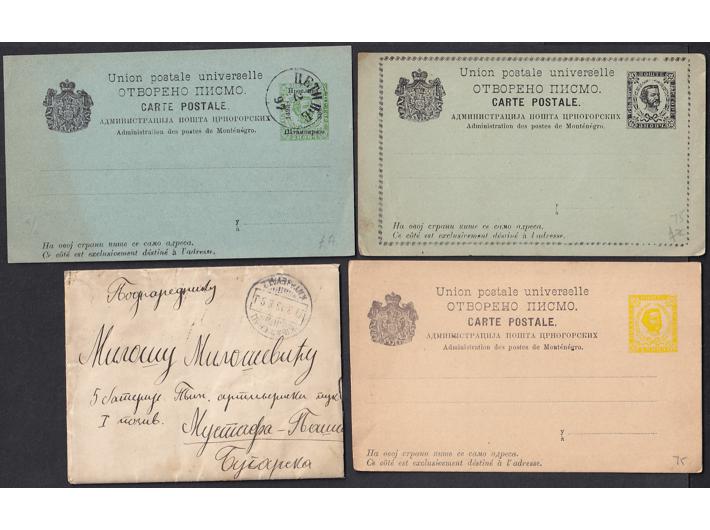 Union postale universelle
ОТВОРЕНО ПИСМО.
CARTE POSTALE.
АДМИНИСТРАЦИЈА ПОШТА ЦРНОГОРСКИХ
Administration des postes de Monténégro.
ЦЕТИЊЕ
97
у
à
На овој страни пише се само адреса.
Ce côté est exclusicement déstiné à l'adresse.
Union postale universelle
ОТВОРЕНО ПИСМО.
CARTE POSTALE.
АДМИНИСТРАЦИЈА ПОШТА ЦРНОГОРСКИХ
Administration des postes de Monténégro.
у
à
75
На овој страни пише се само адреса.
Ce côté est exclusicement déstiné à l'adresse.
Подnareднику
Милошу Милошевићу
5 батерије
I почив.
Мустафа-Паша
Бугарска
Union postale universelle
ОТВОРЕНО ПИСМО.
CARTE POSTALE.
АДМИНИСТРАЦИЈА ПОШТА ЦРНОГОРСКИХ
Administration des postes de Monténégro.
у
à
На овој страни пише се само адреса.
Ce côté est exclusicement déstiné à l'adresse.
75